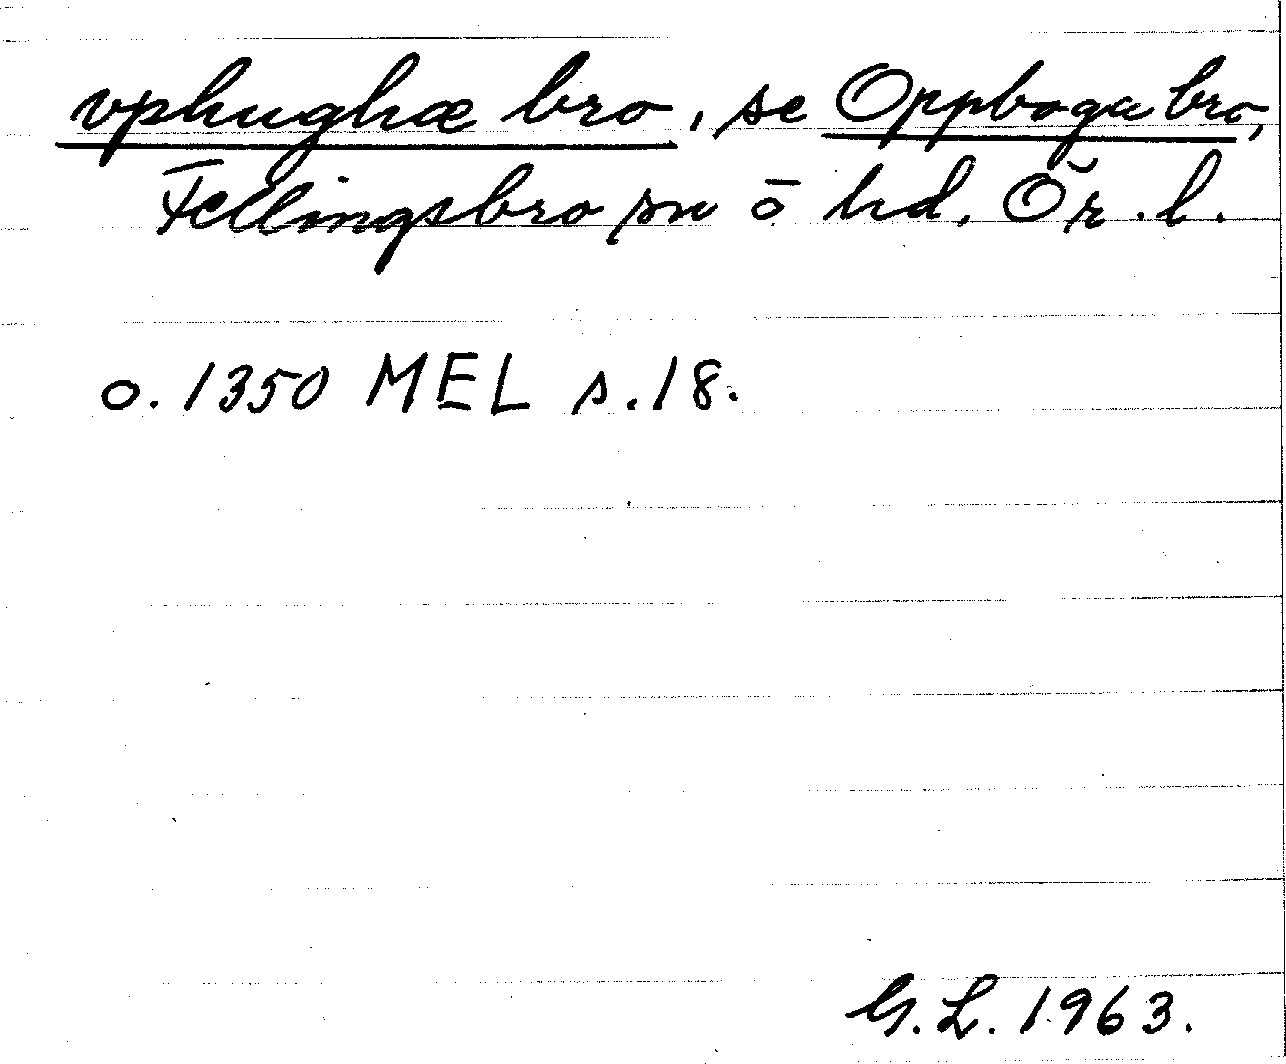 vphughæ bro, se Oppboga bro,
Fellingsbro sn o hd. Ör. l.
o. 1350 MEL s. 18.
G. L. 1963.